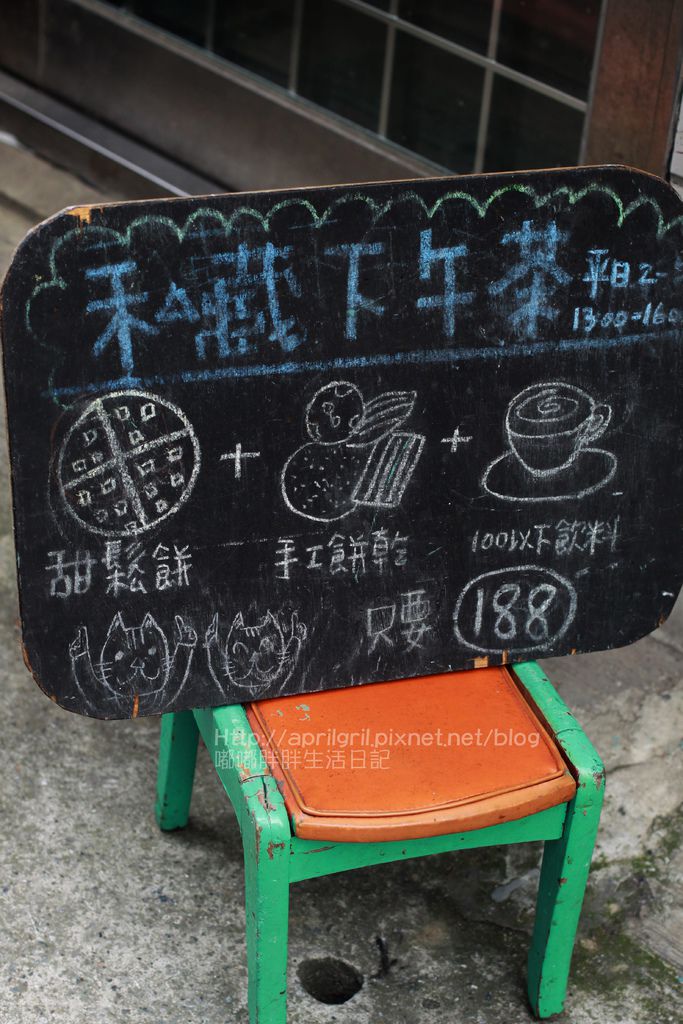 禾藏下午茶
平日 2-5
1300-1600
+ +
甜鬆餅 手工餅乾 100以下飲料
只要 188
Http://aprilgril.pixnet.net/blog
嘟嘟胖胖生活日記